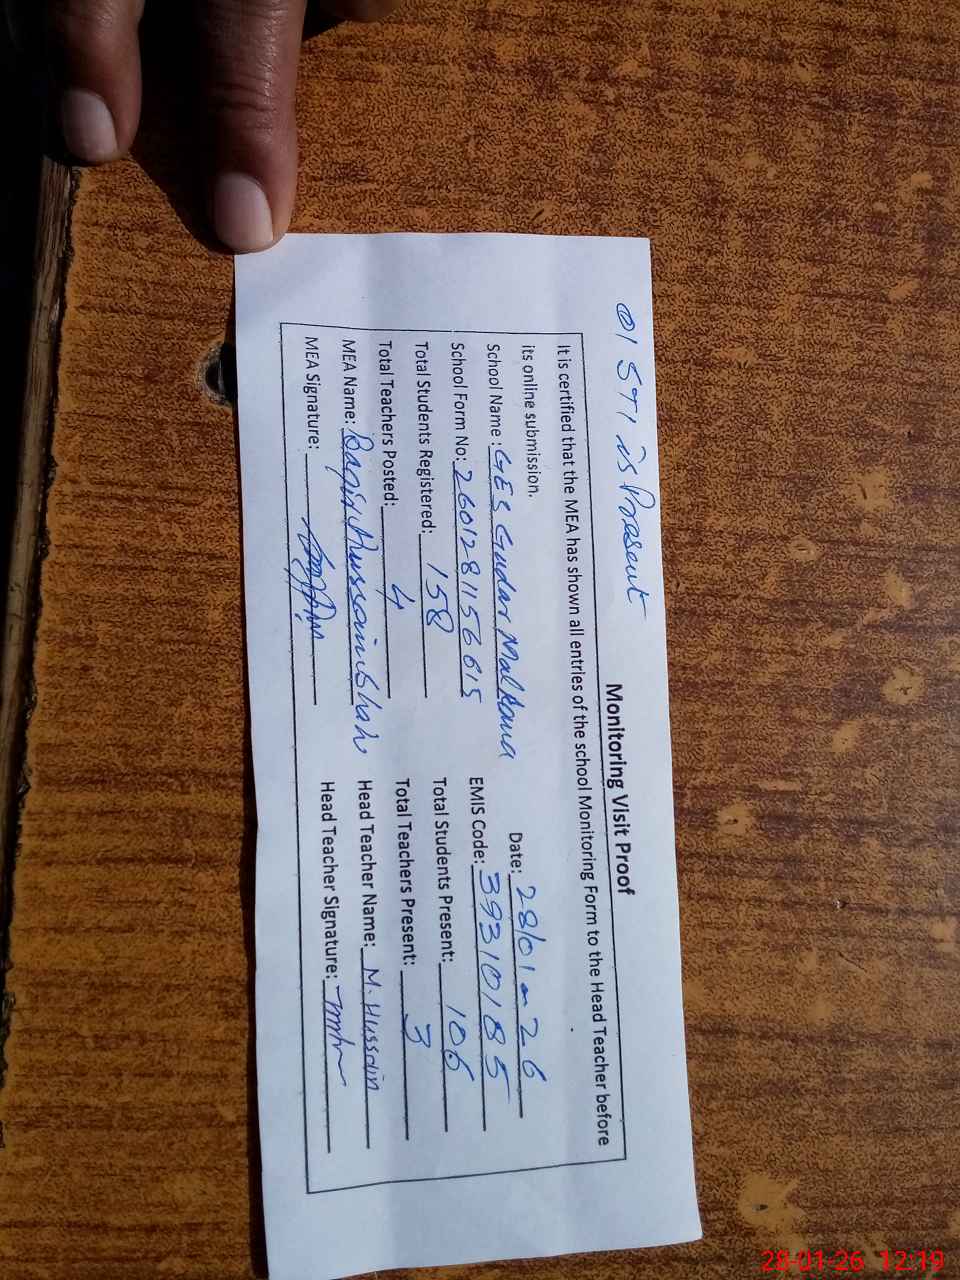 01 STI is Present
Monitoring Visit Proof
It is certified that the MEA has shown all entries of the school Monitoring Form to the Head Teacher before
its online submission. Date: 28/01-26
School Name : GES Gudar Malkana EMIS Code: 39310185
School Form No: 2601281156615 Total Students Present: 106
Total Students Registered: 158 Total Teachers Present: 3
Total Teachers Posted: 4 Head Teacher Name: M. Hussain
MEA Name: Baqir Hussain Shah Head Teacher Signature:
MEA Signature:
28-01-26 12:19